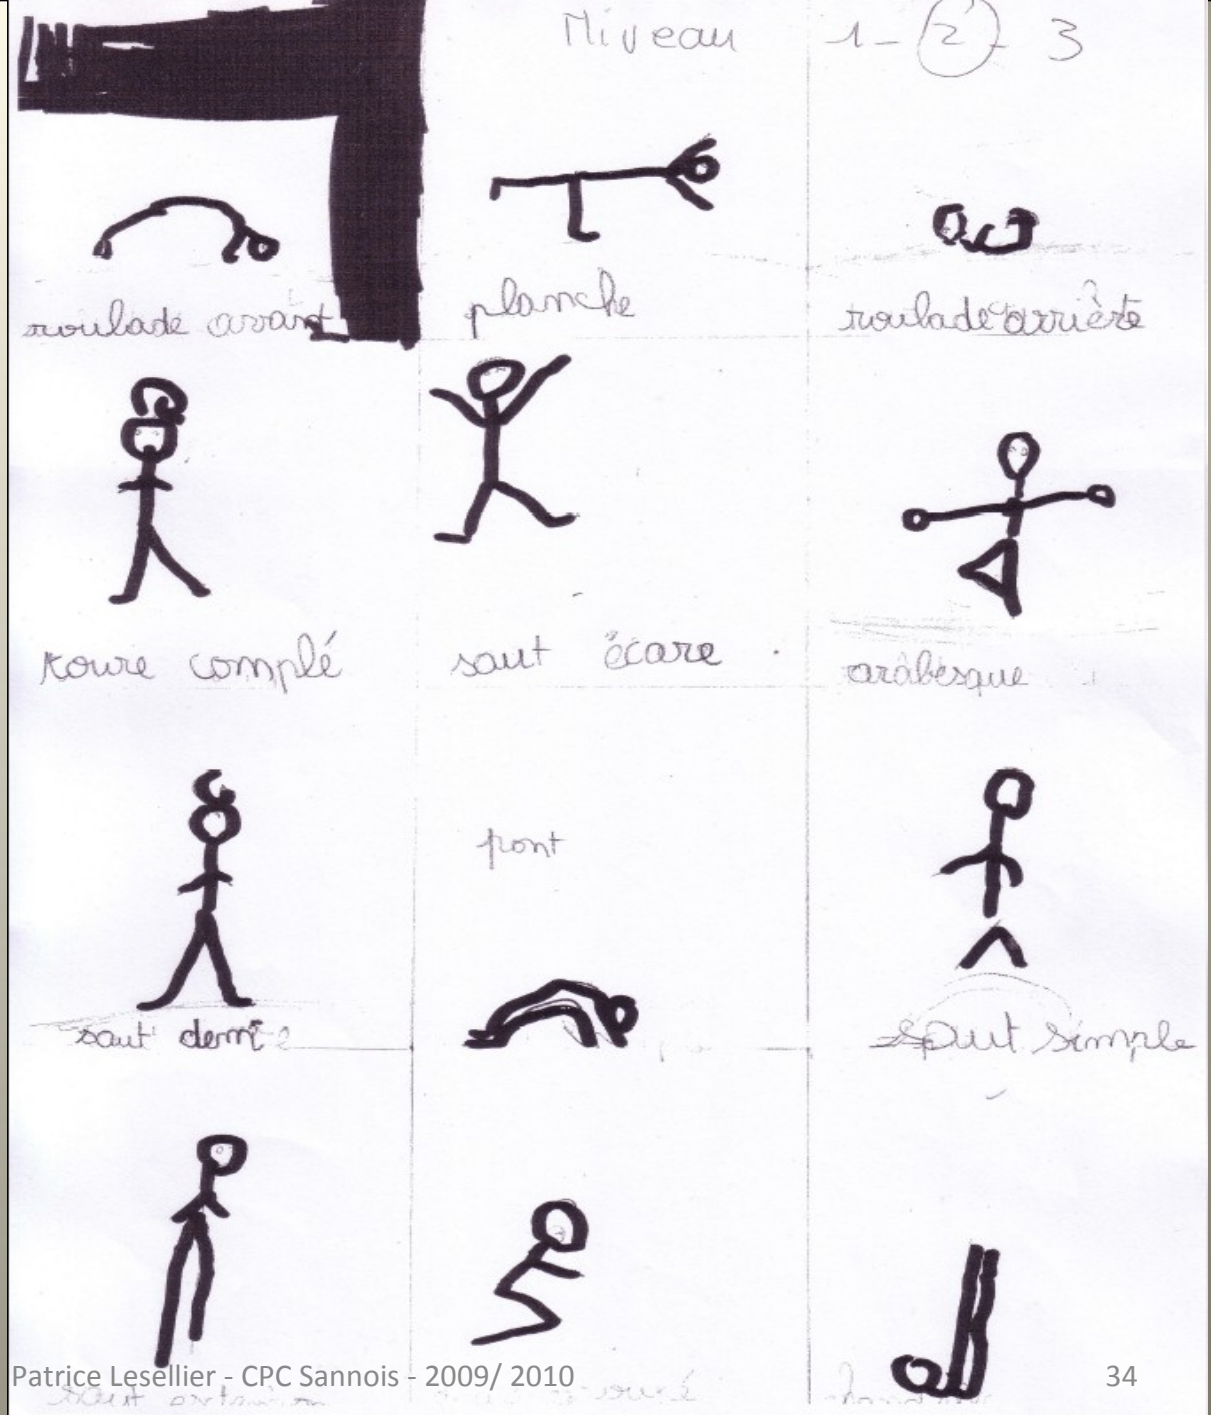 Niveau 1 - 2 - 3
roulade avant
planche
roulade arrière
toure complé
saut écare
arabèsque
saut demi
pont
saut simple
Patrice Lesellier - CPC Sannois - 2009/ 2010
34
saut